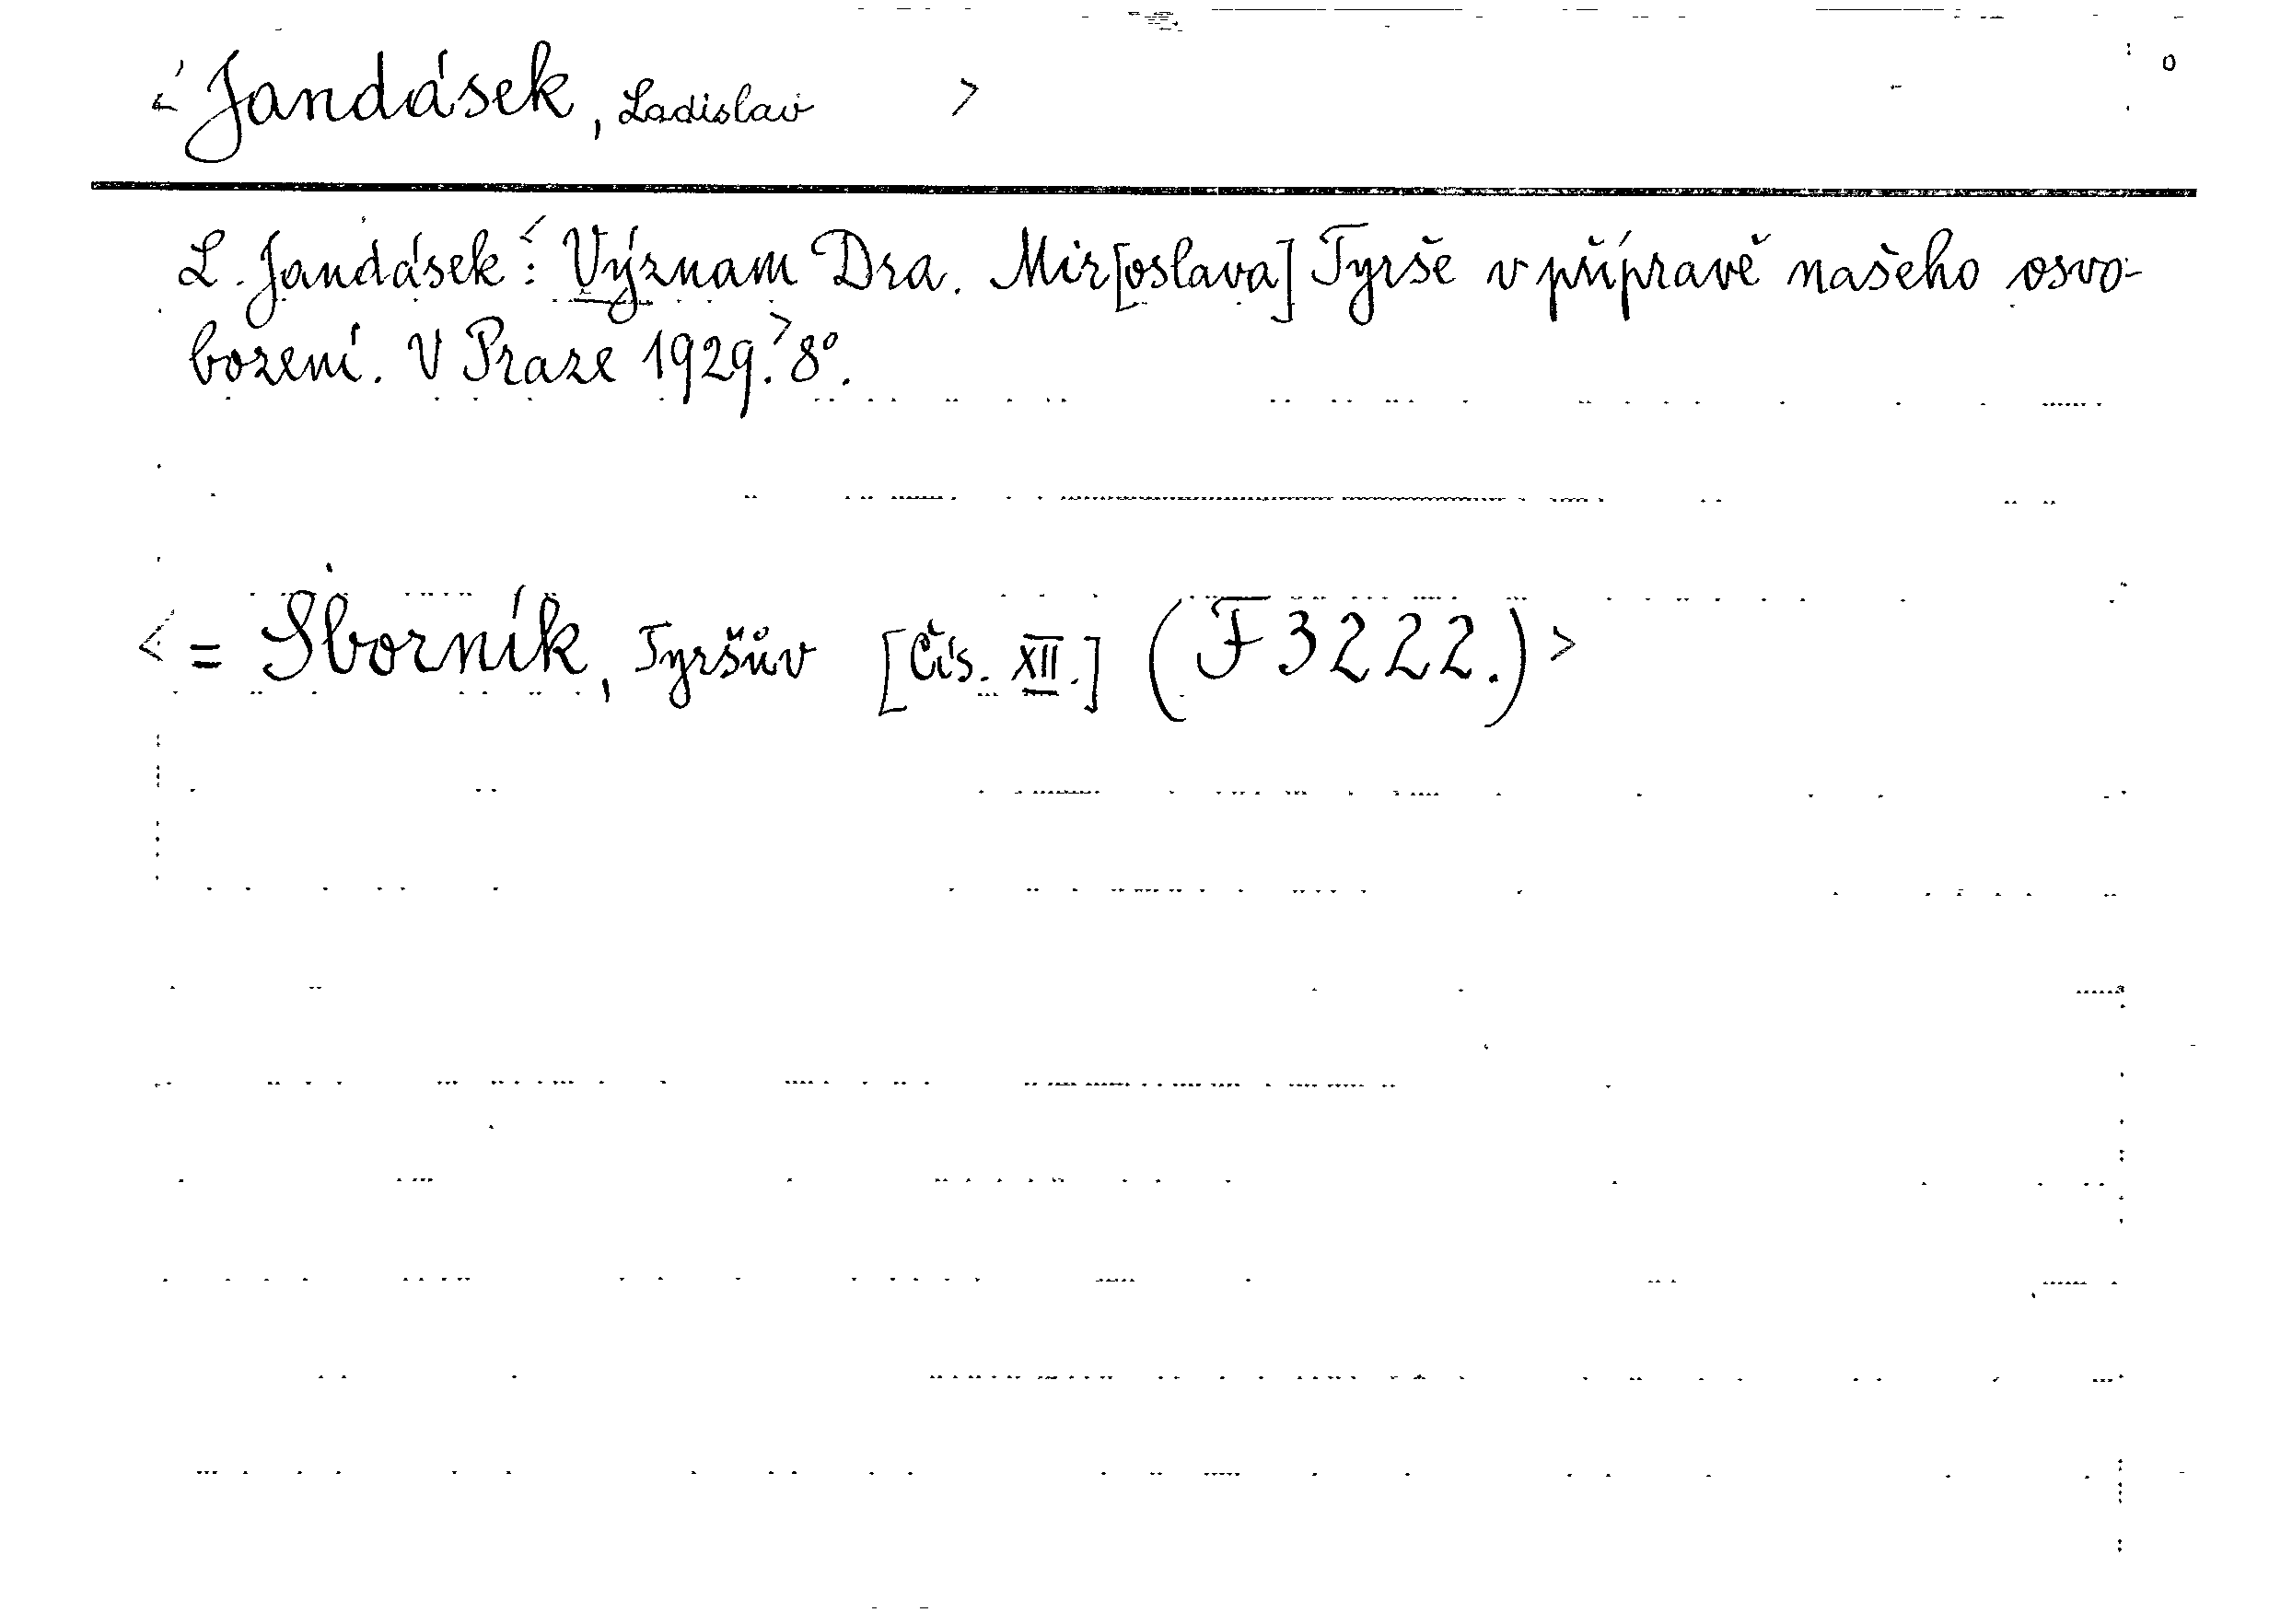 < Jandásek, Ladislav >
L. Jandásek: < Význam Dra. Mir[oslava] Tyrše v přípravě našeho osvo-
bození. V Praze 1929. > 8°.
< = Sborník, Tyršův [Čís. XII.] (F 3222.) >